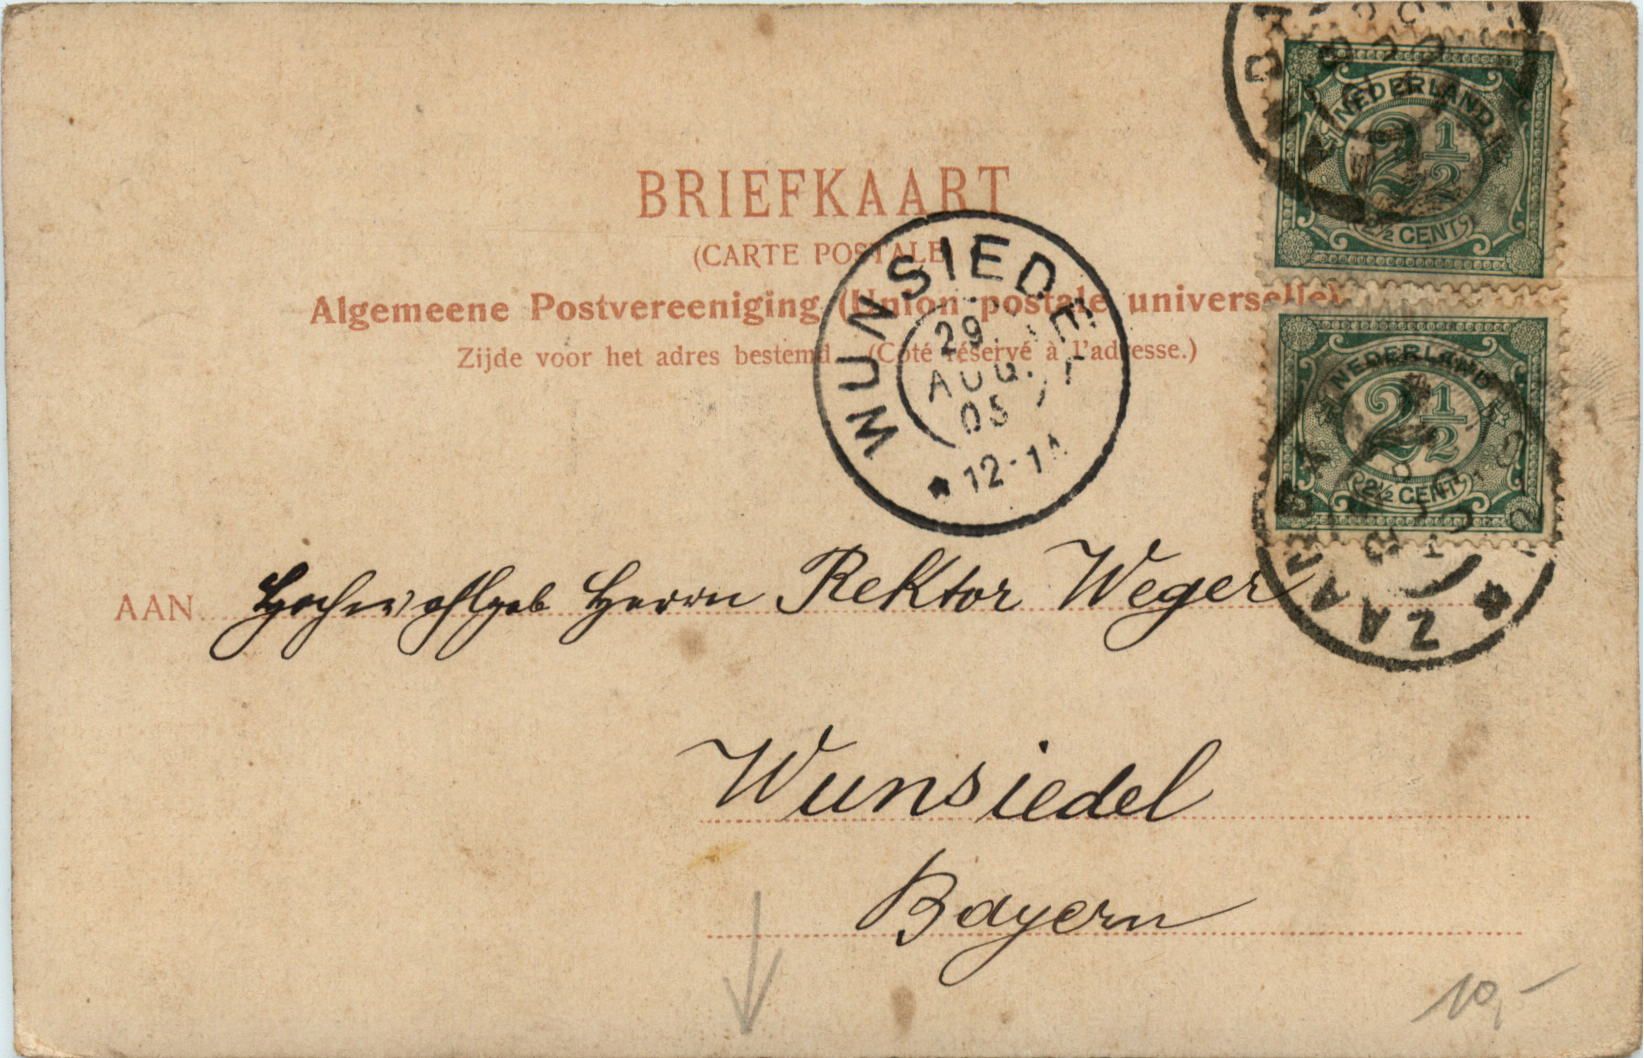 BRIEFKAART
(CARTE POSTALE
Algemeene Postvereeniging (Union postale universelle)
Zijde voor het adres bestemd. (Côté réservé à l'adresse.)
NEDERLAND
2½
2½ CENT
NEDERLAND
2½
2½ CENT
WUNSIEDEL
29.
AUG.
05
12-1
ZAANDAM
AAN Hochwohlgeb Herrn Rektor Weger
Wunsiedel
Bayern
10,-